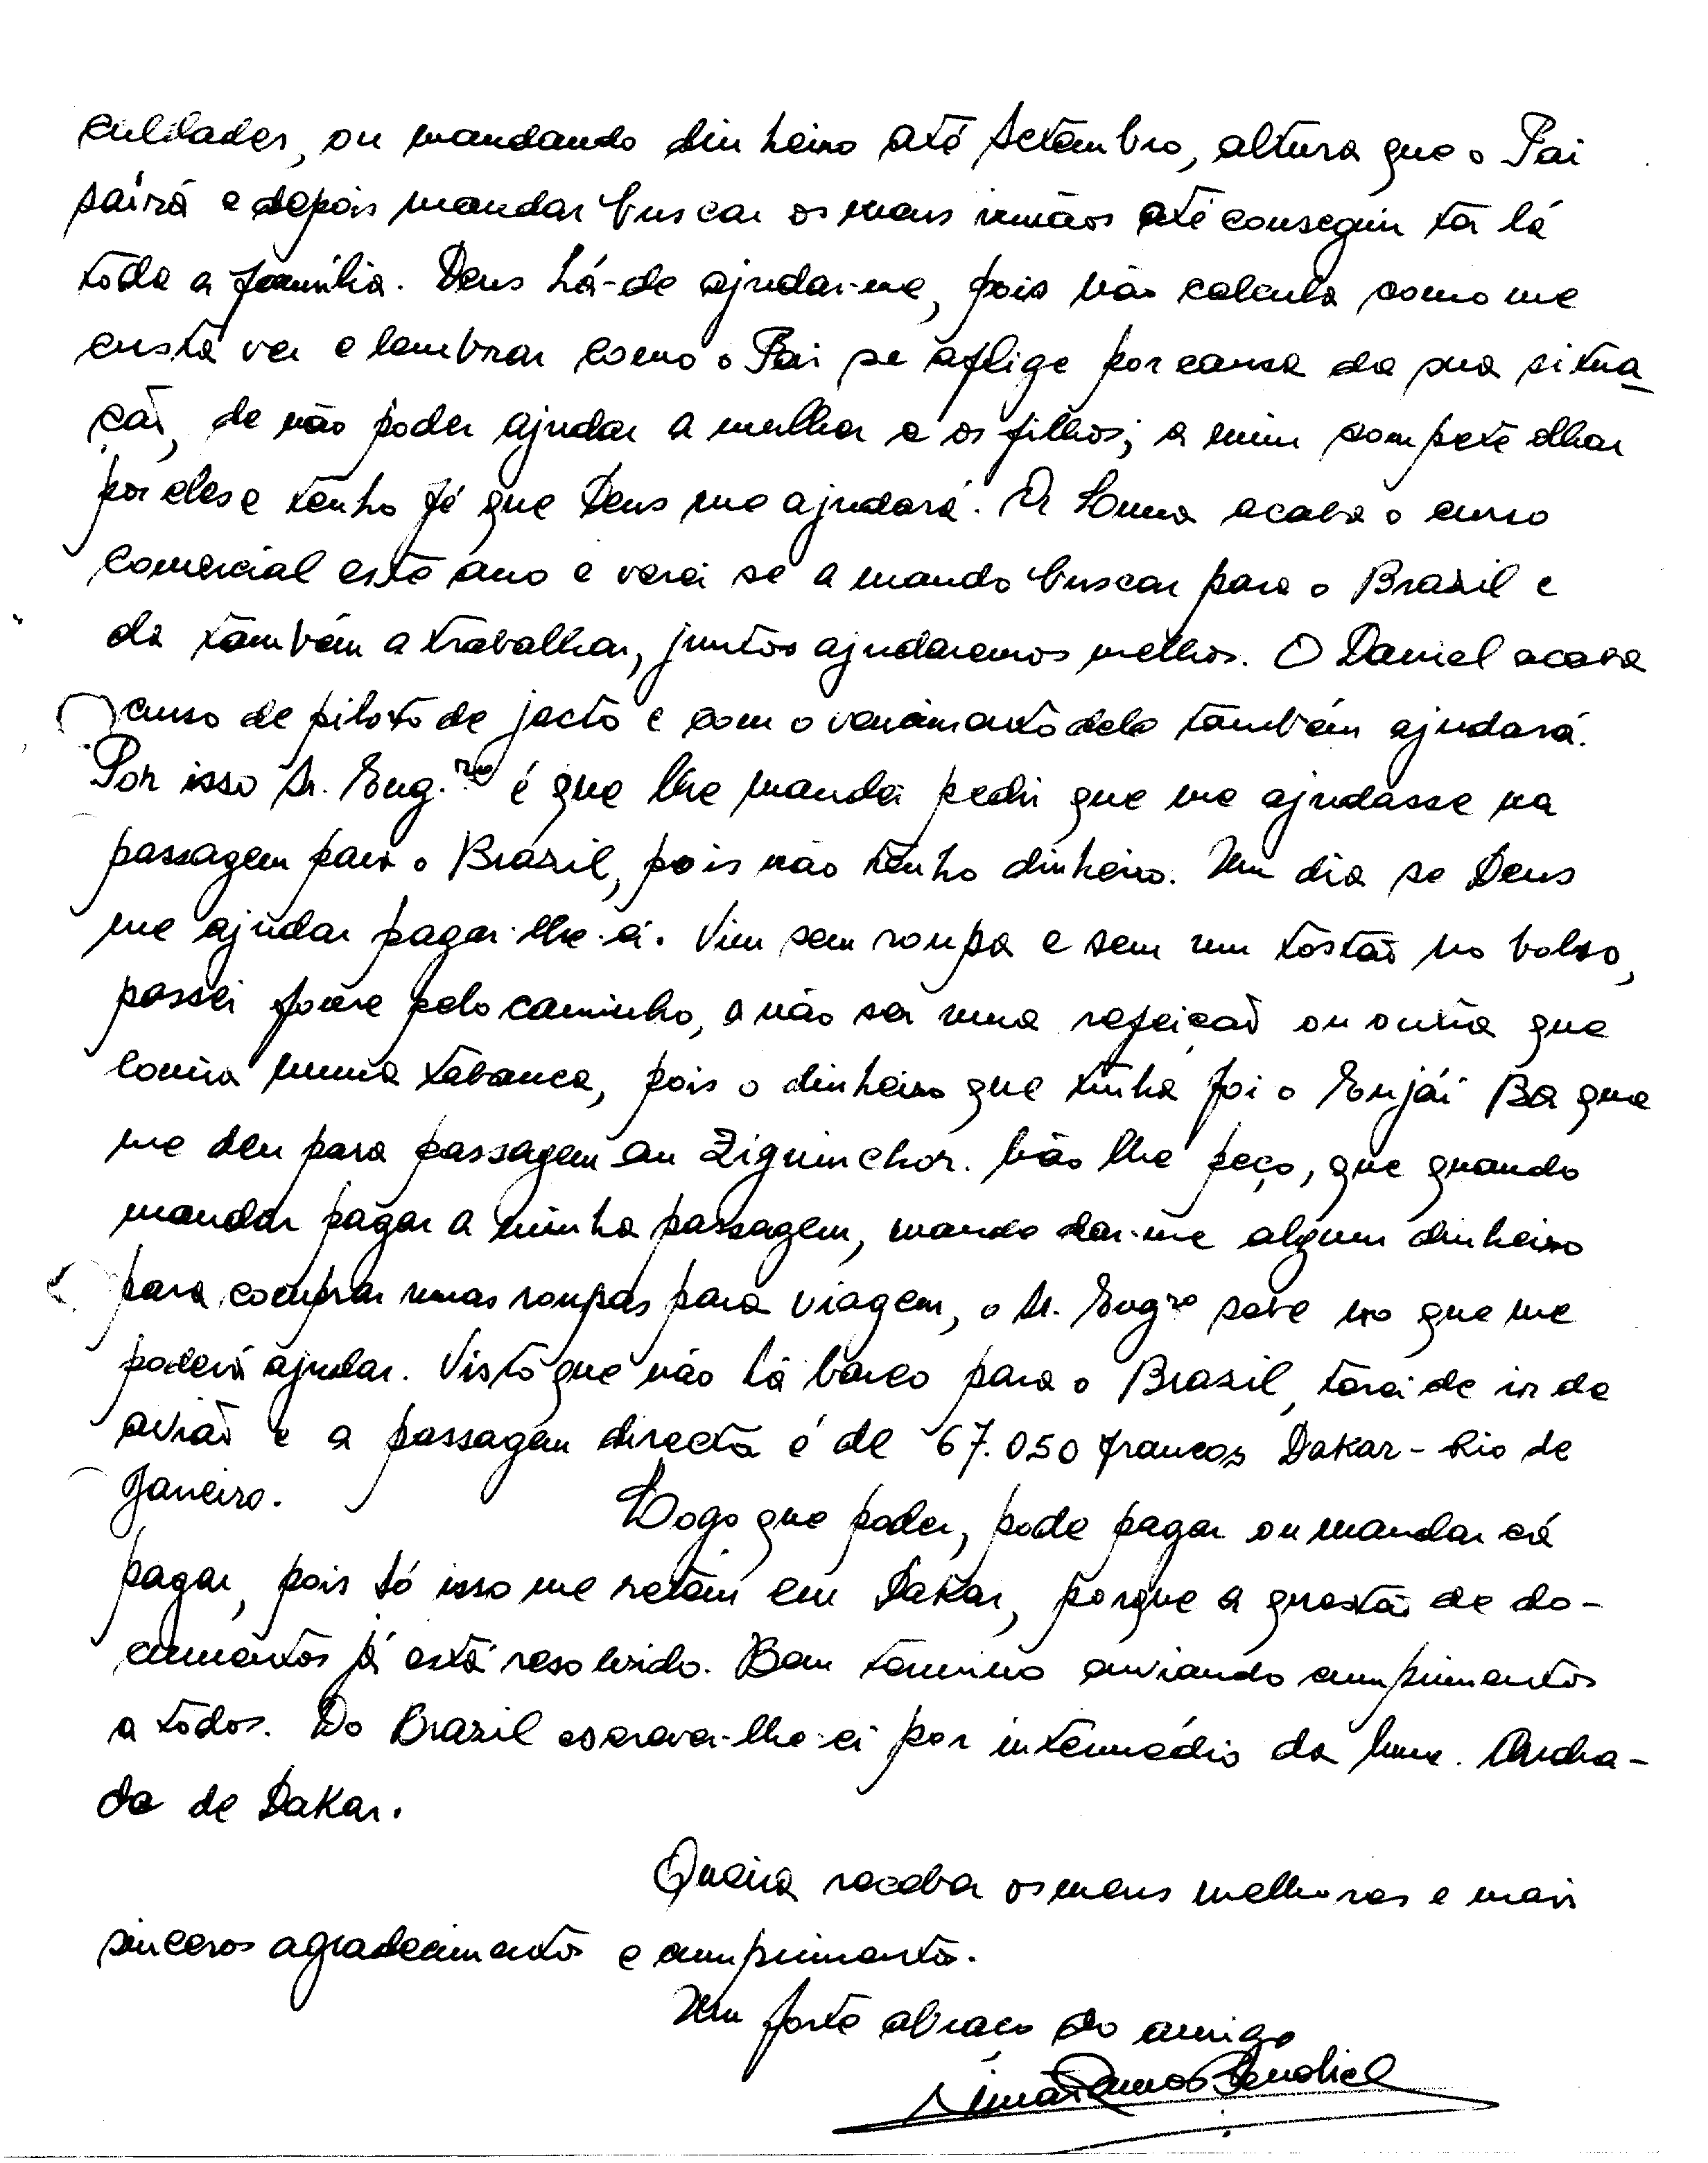 culdades, ou mandando dinheiro até Setembro, altura que o Pai
sairá e depois mandar buscar os meus irmãos até conseguir ter lá
toda a família. Deus há-de ajudar-me, pois não calcula como me
custa ver e lembrar como o Pai se aflige por causa da sua situa-
ção, de não poder ajudar a mulher e os filhos; a mim compete olhar
por eles e tenho fé que Deus me ajudará. A acaba o curso
comercial este ano e verei se a mando buscar para o Brazil e
ela também a trabalhar, juntos ajudaremos melhor. O Daniel acaba
curso de piloto de jacto e com o vencimento dele também ajudará.
Por isso Sr. Eng.ro é que lhe mandei pedir que me ajudasse na
passagem para o Brazil, pois não tenho dinheiro. Um dia se Deus
me ajudar pagar-lhe-ei. Vim sem roupa e sem um tostão no bolso,
passei fome pelo caminho, a não ser uma refeição ou outra que
comia numa tabanca, pois o dinheiro que tinha foi o Enjái Ba que
me deu para passagem em Ziguinchor. Não lhe peço, que quando
mandar pagar a minha passagem, mande dar-me algum dinheiro
para comprar umas roupas para viagem, o Sr. Engro sabe no que me
poderá ajudar. Visto que não há barco para o Brazil, terei de ir de
avião e a passagem directa é de 67.050 francos Dakar - Rio de
Janeiro. Logo que poder, pode pagar ou mandar cá
pagar, pois só isso me retém em Dakar, porque a questão de do-
cumentos já está resolvido. Bem termino enviando cumprimentos
a todos. Do Brazil escrever-lhe-ei por intermédio da Mme. Andra-
de de Dakar.
Queira receber os meus melhores e mais
sinceros agradecimentos e cumprimentos.
Um forte abraço do amigo